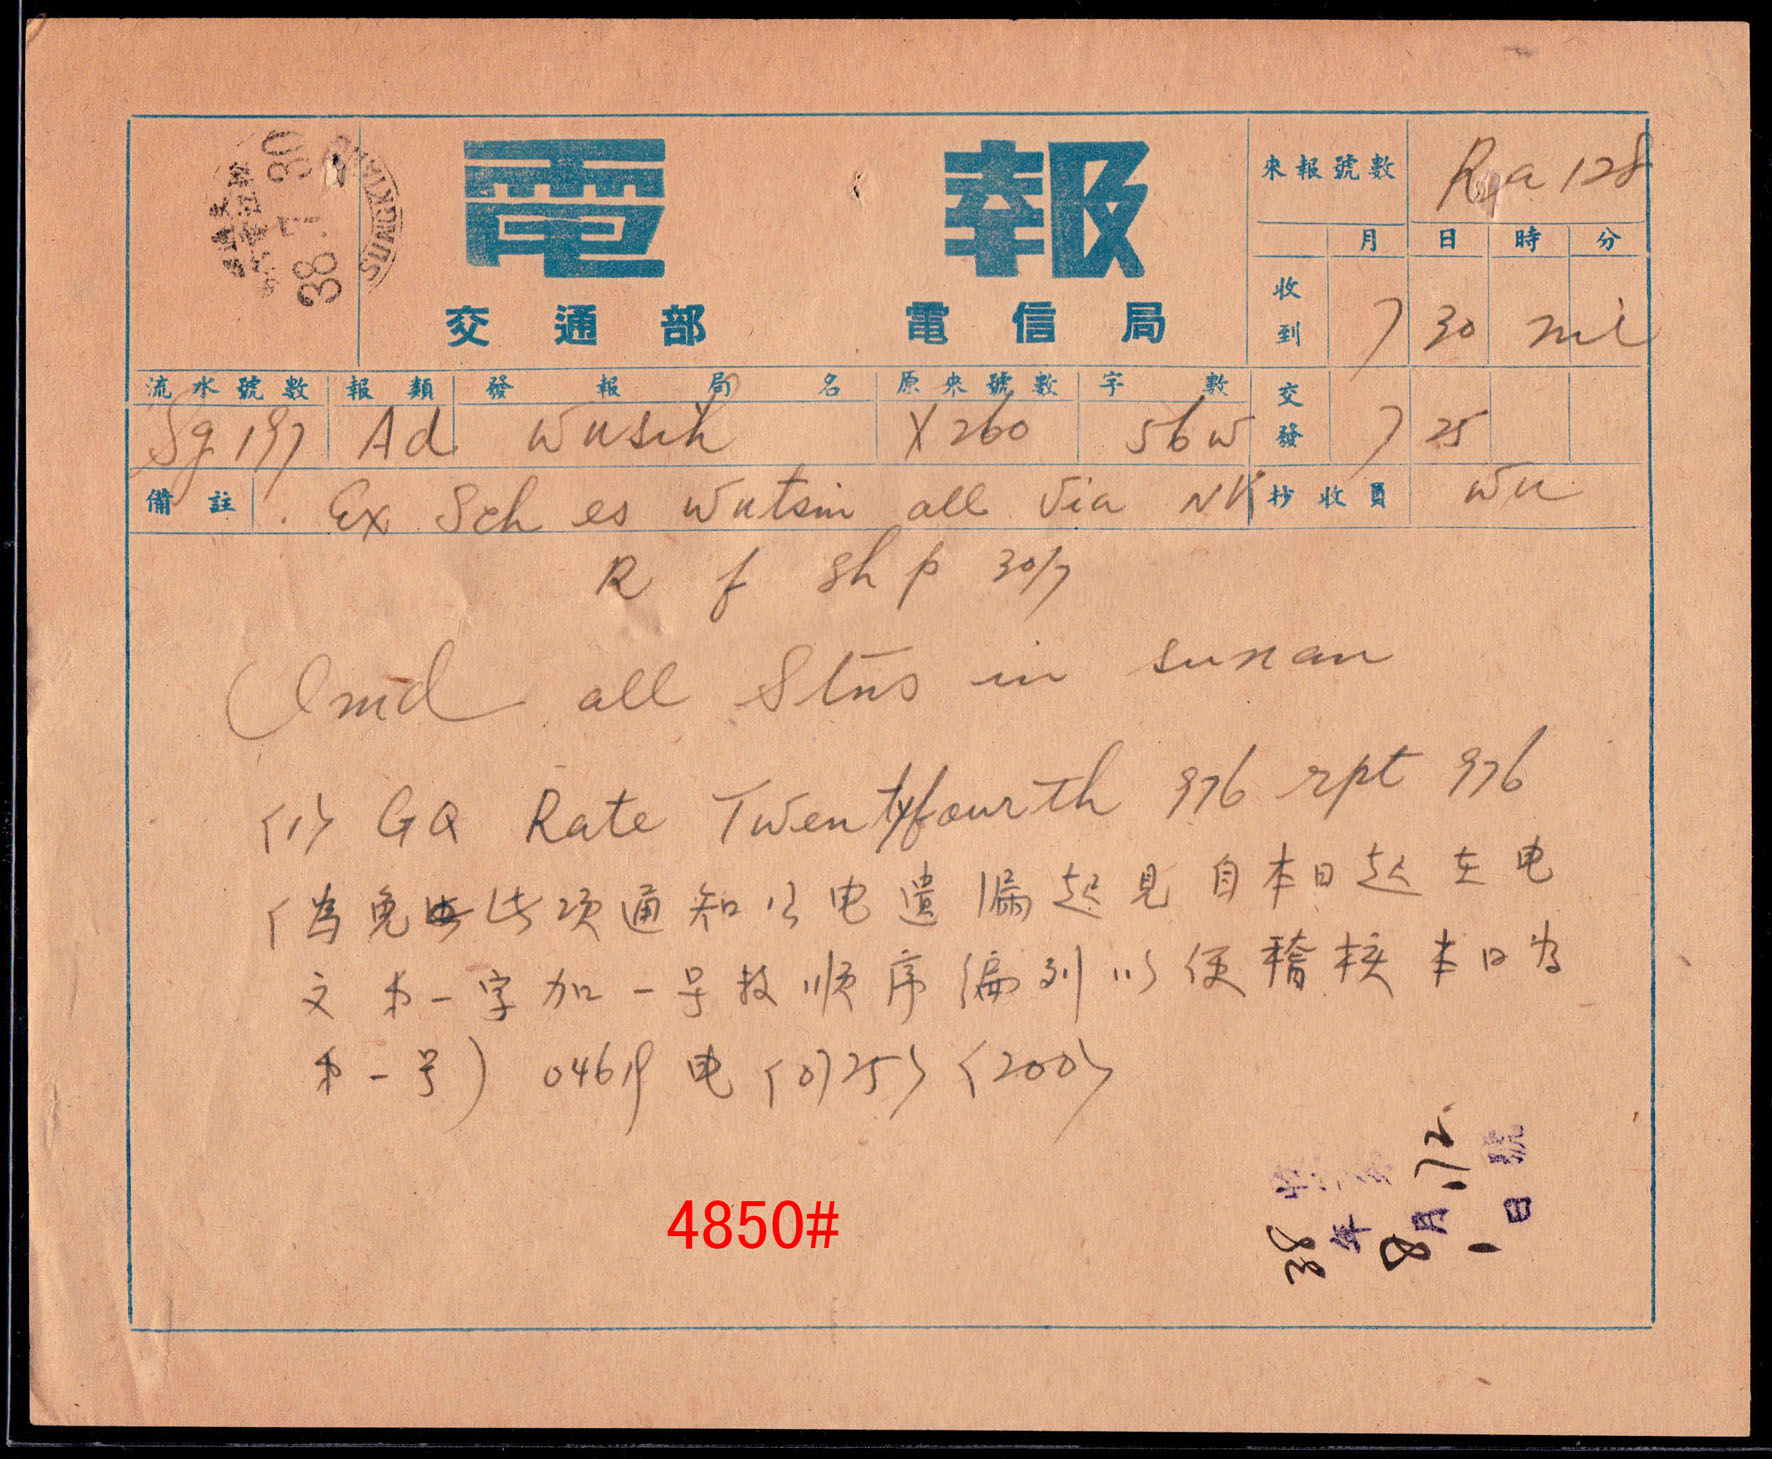 38.7.30
SUNGKIANG
電報
交通部 電信局
來報號數 128
月 日 時 分
收到 7 30
流水號數 報類 發報局名 原來號數 字數
Sg 197 Ad Wusih X260 56W
交發 7 25
備註 Ex Sch es Wutsin all Via NK 抄收員 Wu
R f Sh p 30/7
Omd all Stns in sunan
(1) GQ Rate Twentyfourth 976 rpt 976
(為免此项通知公电遺漏起見自本日起在电
文第一字加一号按順序编列以便稽核本日为
第一号) 0461 电 (0725) (200)
172 號
38年8月1日
4850#